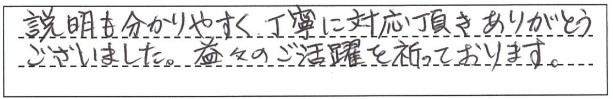 説明も分かりやすく 丁寧に対応頂きありがとう
ございました。益々のご活躍を祈っております。